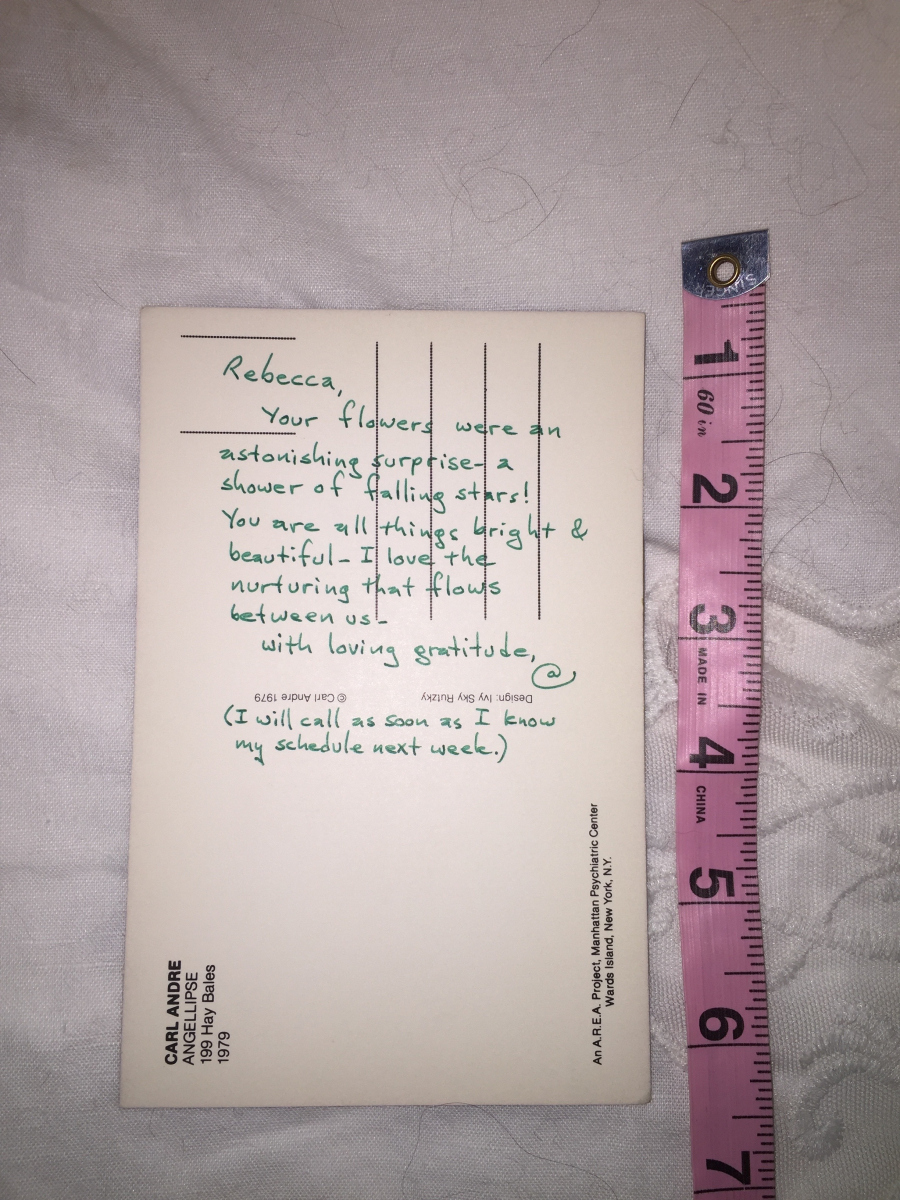 Rebecca,
Your flowers were an
astonishing surprise- a
shower of falling stars!
You are all things bright &
beautiful- I love the
nurturing that flows
between us!-
with loving gratitude,
@
© Carl Andre 1979
Design: Ivy Sky Rutzky
(I will call as soon as I know
my schedule next week.)
CARL ANDRE
ANGELLIPSE
199 Hay Bales
1979
An A.R.E.A. Project, Manhattan Psychiatric Center
Wards Island, New York, N.Y.
SINGER
1
60 in
2
3
MADE IN
4
CHINA
5
6
7